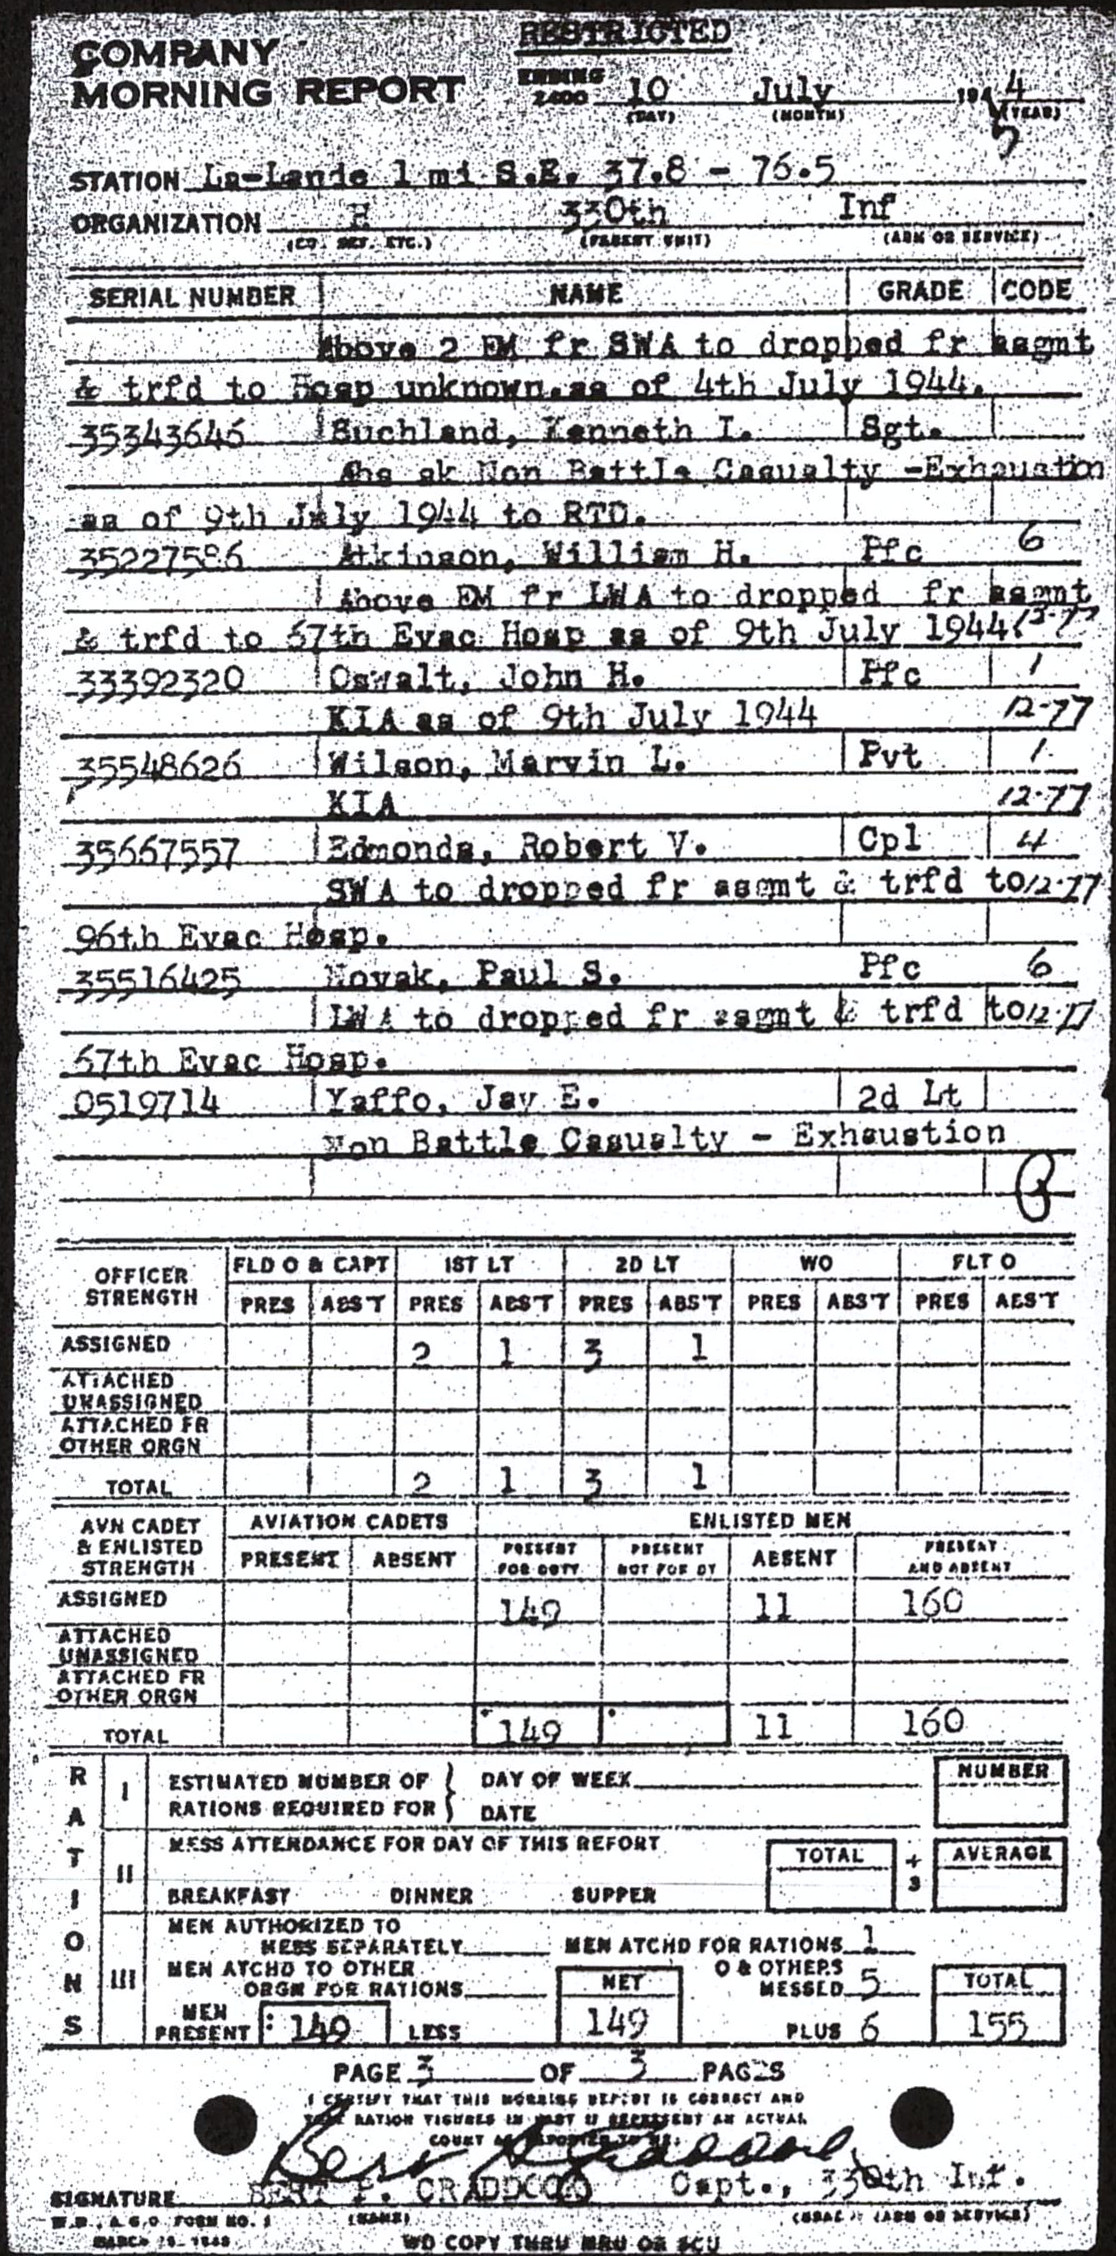 RESTRICTED
COMPANY
MORNING REPORT
ENDING 2400 10 July 194 4
(DAY) (MONTH) (YEAR)
STATION La-Lande 1 mi S.E. 37.8 - 76.5
ORGANIZATION H 330th Inf
(CO. DET. ETC.) (PARENT UNIT) (ARM OR SERVICE)
SERIAL NUMBER NAME GRADE CODE
Above 2 EM fr SWA to dropped fr asgmt
& trfd to Hosp unknown.as of 4th July 1944.
35343646 Buchland, Kenneth I. Sgt.
Abs sk Non Battle Casualty -Exhaustion
as of 9th July 1944 to RTD.
35227586 Atkinson, William H. Pfc 6
Above EM fr LWA to dropped fr asgmt
& trfd to 67th Evac Hosp as of 9th July 1944
33392320 Oswalt, John H. Pfc 1
KIA as of 9th July 1944 12-77
35548626 Wilson, Marvin L. Pvt 1
KIA 12-77
35667557 Edmonds, Robert V. Cpl 4
SWA to dropped fr asgmt & trfd to 12-77
96th Evac Hosp.
35516425 Novak, Paul S. Pfc 6
LWA to dropped fr asgmt & trfd to 12-77
67th Evac Hosp.
0519714 Yaffo, Jay E. 2d Lt
Non Battle Casualty - Exhaustion
OFFICER STRENGTH FLD O & CAPT 1ST LT 2D LT WO FLT O
PRES ABS'T PRES ABS'T PRES ABS'T PRES ABS'T PRES ABS'T
ASSIGNED 2 1 3 1
ATTACHED UNASSIGNED
ATTACHED FR OTHER ORGN
TOTAL 2 1 3 1
AVN CADET & ENLISTED STRENGTH AVIATION CADETS ENLISTED MEN
PRESENT ABSENT PRESENT FOR DUTY PRESENT NOT FOR DY ABSENT PRESENT AND ABSENT
ASSIGNED 149 11 160
ATTACHED UNASSIGNED
ATTACHED FR OTHER ORGN
TOTAL 149 11 160
RATIONS
I ESTIMATED NUMBER OF RATIONS REQUIRED FOR } DAY OF WEEK NUMBER
DATE
II MESS ATTENDANCE FOR DAY OF THIS REPORT TOTAL ÷ 3 AVERAGE
BREAKFAST DINNER SUPPER
III MEN AUTHORIZED TO
MESS SEPARATELY MEN ATCHD FOR RATIONS 1
MEN ATCHD TO OTHER ORGN FOR RATIONS NET O & OTHERS MESSED 5 TOTAL
MEN PRESENT 149 LESS 149 PLUS 6 155
PAGE 3 OF 3 PAGES
I CERTIFY THAT THIS MORNING REPORT IS CORRECT AND
THAT RATION FIGURES IN PART II REPRESENT AN ACTUAL
COUNT AS REPORTED TO ME.
SIGNATURE BERT P. CRADDOCK Capt., 330th Inf.
(NAME) (GRADE) (ARM OR SERVICE)
W.D., A.G.O. FORM NO. 1
WD COPY THRU MRU OR SCU